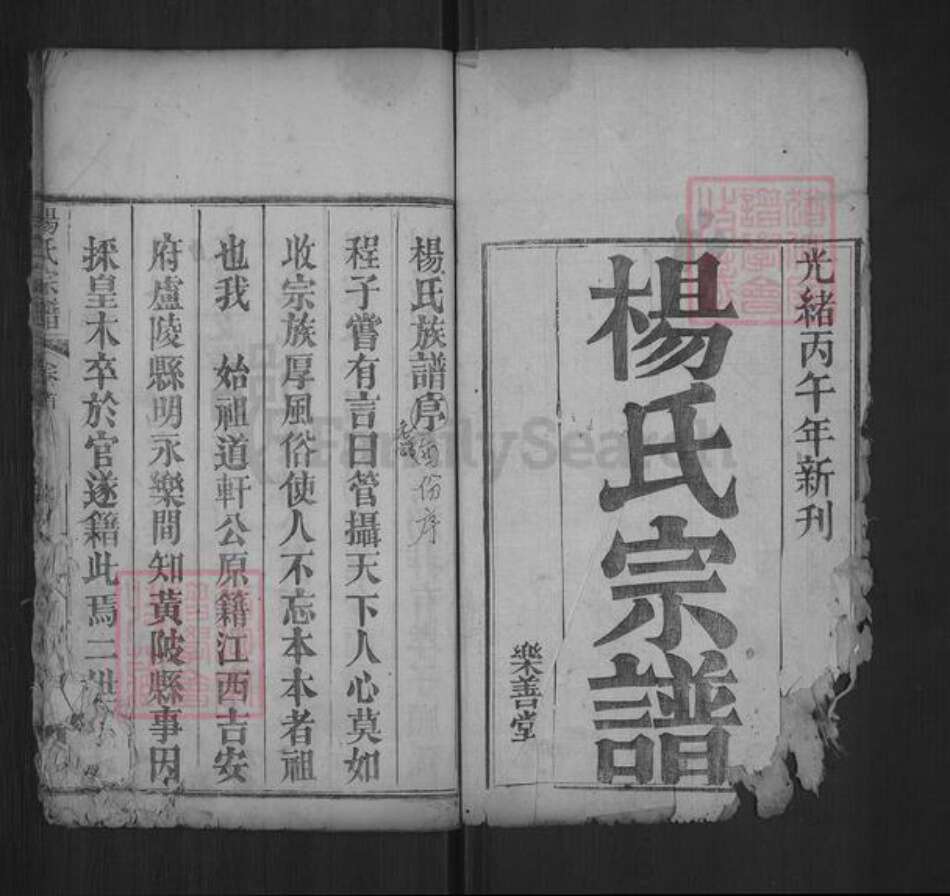 光緒丙午年新刊
楊氏宗譜
樂善堂
楊氏族譜序
份序
程子嘗有言曰管攝天下人心莫如
收宗族厚風俗使人不忘本本者祖
也我　始祖道軒公原籍江西吉安
府盧陵縣明永樂間知黃陂縣事因
採皇木卒於官遂籍此焉二世
楊氏宗譜
FamilySearch